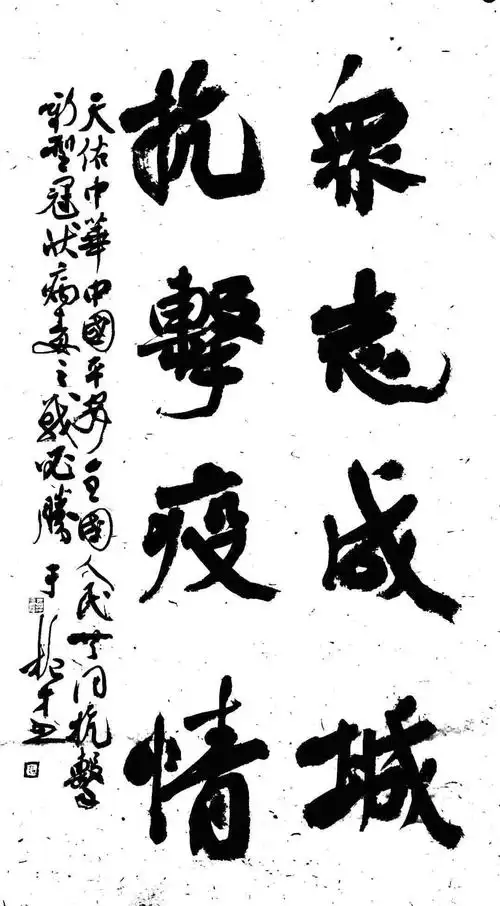 衆志成城
抗擊疫情
天佑中華中國平安全國人民共同抗擊
新型冠狀病毒之戰必勝 于才书